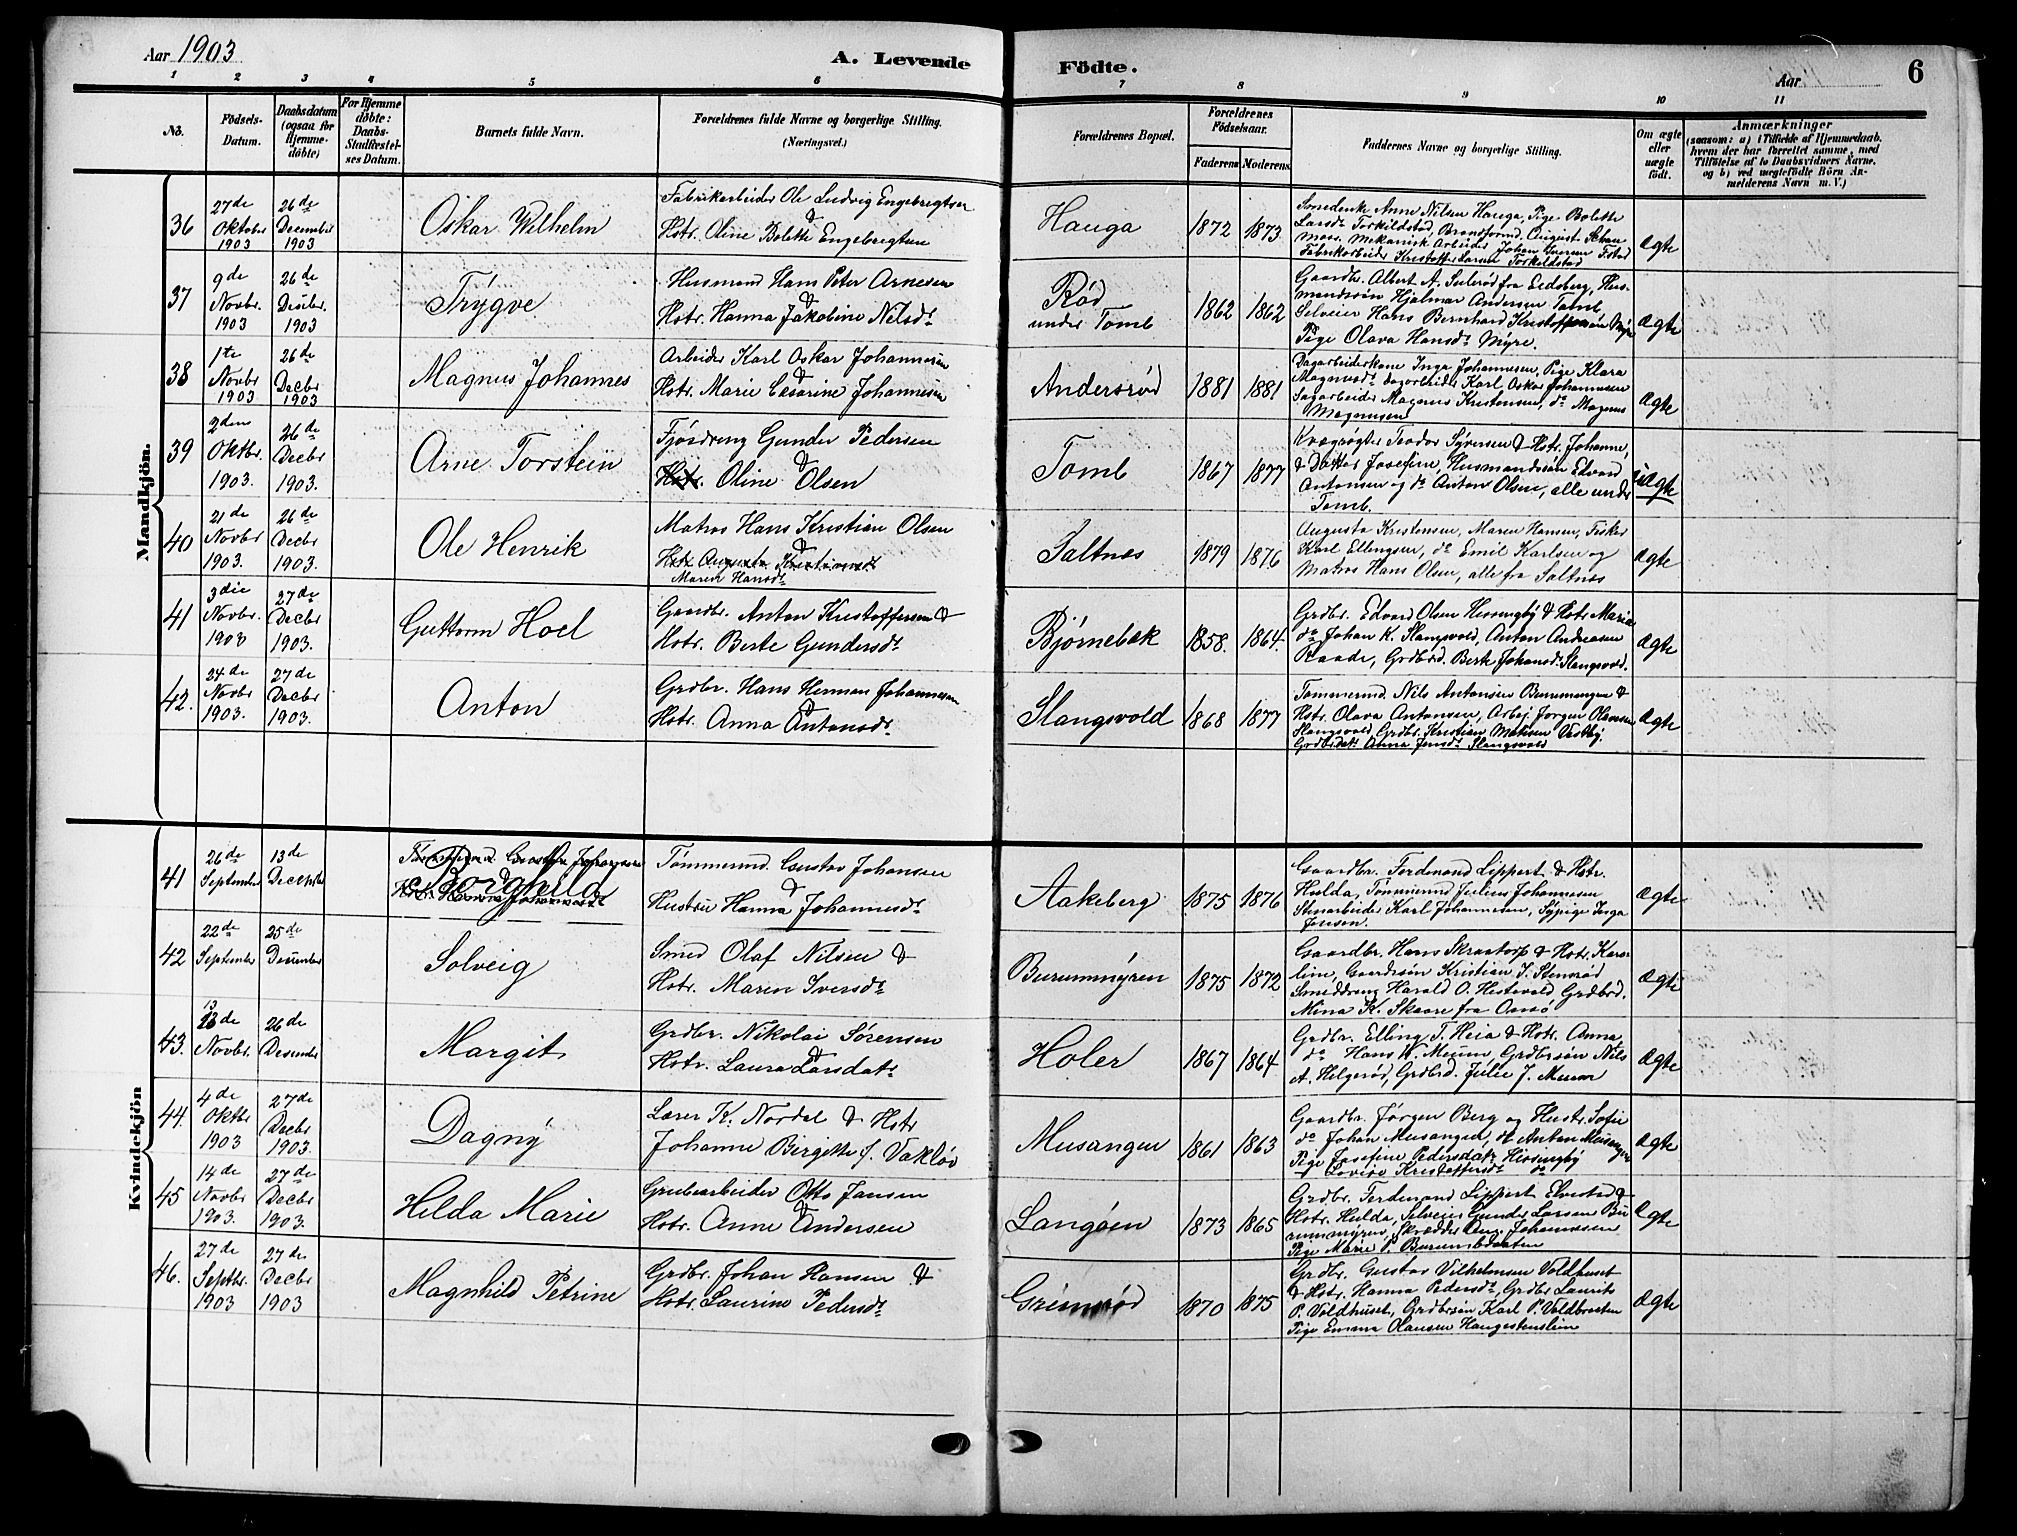 Aar 1903
A. Levende Födte.
Aar
6
1 2 3 4 5 6 7 8 9 10 11
No.
Födsels-
Datum.
Daabsdatum
(ogsaa for
Hjemme-
döbte)
For Hjemme
döbte:
Daabs-
Stadfæstel-
ses Datum.
Barnets fulde Navn.
Forældrenes fulde Navne og borgerlige Stilling.
(Næringsvei.)
Forældrenes Bopæl.
Forældrenes
Födselsaar.
Faderens Moderens
Faddernes Navne og borgerlige Stilling.
Om ægte
eller
uægte
födt.
Anmærkninger
(saasom: a) i Tilfælde af Hjemmedaab,
hvem der har forrettet samme, med
Tilföielse af to Daabsvidners Navne.
og b) ved uægtefödte Börn An-
melderens Navn m. V.)
Mandkjön.
36
27de
Oktober
1903
26de
December
1903
Oskar Wilhelm
Fabrikarbeider Ole Ludvig Engebregtsen
&
Hstr. Oline Bolette Engebregtsen
Hauga
1872 1873
Smedenk. Anne Nilsen Hauga, Pige Bolette
Larsdr Torkildstad, Brandformd. August
Moss. Mekanisk Arbeider Johan
Fabrikarbeider Kristoffer Larsen Torkildstad
Ægte
37
9de
Novbr.
1903
26de
Decbr.
1903
Trygve
Husmand Hans Peter Arnesen
&
Hstr. Hanna Jakobine Nilsdr
Rød
under Tomb
1862 1862
Gaardbr. Albert A. Sulerød fra Eidsberg, Hus-
mandssøn Hjalmar Andersen Tomb,
Selveier Hans Bernhard Kristoffersen Myre
Pige Olava Hansdr Myre.
Ægte
38
1te
Novbr
1903
26de
Decbr
1903
Magnus Johannes
Arbeider Karl Oskar Johannesen
&
Hstr. Marie Cesarine Johannesen
Andersrød
1881 1881
Dagarbeiderkone Inga Johannesen, Pige Klara
Magnusdr dagarbeider Karl Oskar Johannesen
Sagarbeider Magnus Kristensen, do Magnus
Magnussen
Ægte
39
2den
Oktbr.
1903.
26de
Decbr
1903.
Arne Torstein
Fjøsdreng Gunder Pedersen
&
Hstr. Oline Olsen
Tomb
1867 1877
Kvægrøgter Teodor Syversen & Hstr. Johanne,
& Datter Josefine, Husmandssøn Edvard
Antonsen og do Anton Olsen, alle under
Tomb.
uægte
40
21de
Novbr
1903.
26de
Decbr
1903.
Ole Henrik
Matros Hans Kristian Olsen
&
Hstr. Augusta Kristiansdr
Maren Hansdr
Saltnes
1879 1876
Augusta Kristensen, Maren Hansen, Fisker
Karl Ellingsen, do Emil Karlsen og
Matros Hans Olsen, alle fra Saltnes
Ægte
41
3die
Novbr.
1903
27de
Decbr
1903.
Guttorm Hoel
Gaardbr. Anton Kristoffersen &
Hstr. Berte Gundersdr
Bjørnebæk
1858. 1864.
Grdbr. Edvard Olsen Hissingby & Hstr Marie
do Johan K. Slangsvold, Anton Andreasen
Raade, Grdbrd. Berte Johansdr Slangsvold.
Ægte
42.
24de
Novbr
1903.
27de
Decbr
1903.
Anton
Grdbr. Hans Herman Johannesen
&
Hstr. Anna Antonsdr
Slangsvold
1868 1877
Tømmermd. Nils Antonsen Burumengen &
Hstr. Olava Antonsen, Arbej. Jørgen Olausen
Slangsvold, Grdbr. Kristian Mathisen Vestby.
Grdbrdatr Anna Jensdr Slangsvold
Ægte
Kvindekjön
41
26de
September
13de
December
Tømmermd. Gustav Johansen
&
Hstr. Hanna Johannesdr
Borghild
Tømmermd. Gustav Johansen
&
Hustru Hanna Johannesdr
Aakeberg
1875 1876
Gaardbr. Ferdinand Lippert & Hstr.
Hulda, Tømmermd Julius Johannesen
Stenarbeider Karl Johannesen, Sypige Inga
Jensen.
Ægte
42
22de
September
25de
December
Solveig
Smed Olaf Nilsen &
Hstr. Maren Iversdr
Burummyren
1875 1872
Gaardbr. Hans Skraatorp & Hstr. Karo-
line, Gaardssøn Kristian J. Stensrød
Smeddreng Harald O. Hestvold Grdbrd.
Mina K. Skaare fra Onsø
Ægte
43.
13
de
Novbr.
26de
Desember
Margit
Grdbr. Nikolai Sørensen
&
Hstr. Laura Larsdatr
Holer
1867 1864
Grdbr. Elling T. Heia & Hstr. Anna,
do Hans K. Meum, Grdbrsøn Nils
A. Helgerød, Grdbrd. Julie J. Meum
Ægte
44.
4de
Oktbr
1903
27de
Decbr
1903.
Dagny
Lærer K. Nordal & Hstr
Johanne Birgitte f. Vakløv
Musangen
1861 1863
Gaardbr. Jørgen Berg og Hustr. Sofie
do Johan Musangen, do Anton Musangen
Pige Josefine Pedersdatr Hissingby
" Lovise Kristoffersdr do
Ægte
45
14de
Novbr
1903.
27de
Decbr
1903.
Hilda Marie
Grubearbeider Otto Jansen
&
Hstr. Anne Andersen
Langøen
1873 1865
Grdbr. Ferdinand Lippert Elvestad &
Hstr. Hulda, Selveier Gunder Larsen Bu
rummyren, Skrædder Aug. Johannesen
Pige Marie P. Burumbraaten
Ægte
46.
27de
Septbr.
1903
27de
Decbr
1903
Magnhild Petrine
Grdbr. Johan Hansen &
Hstr. Laurine Pedersdr
Grimsrød
1870 1875
Grdbr. Gustav Vilhelmsen Voldhuset
& Hstr. Hanna Pedersdr, Grdbr Laurits
P. Voldhuset, Grdbrsøn Karl P. Voldbraaten
Pige Emma Olausen Haugestenslien
Ægte